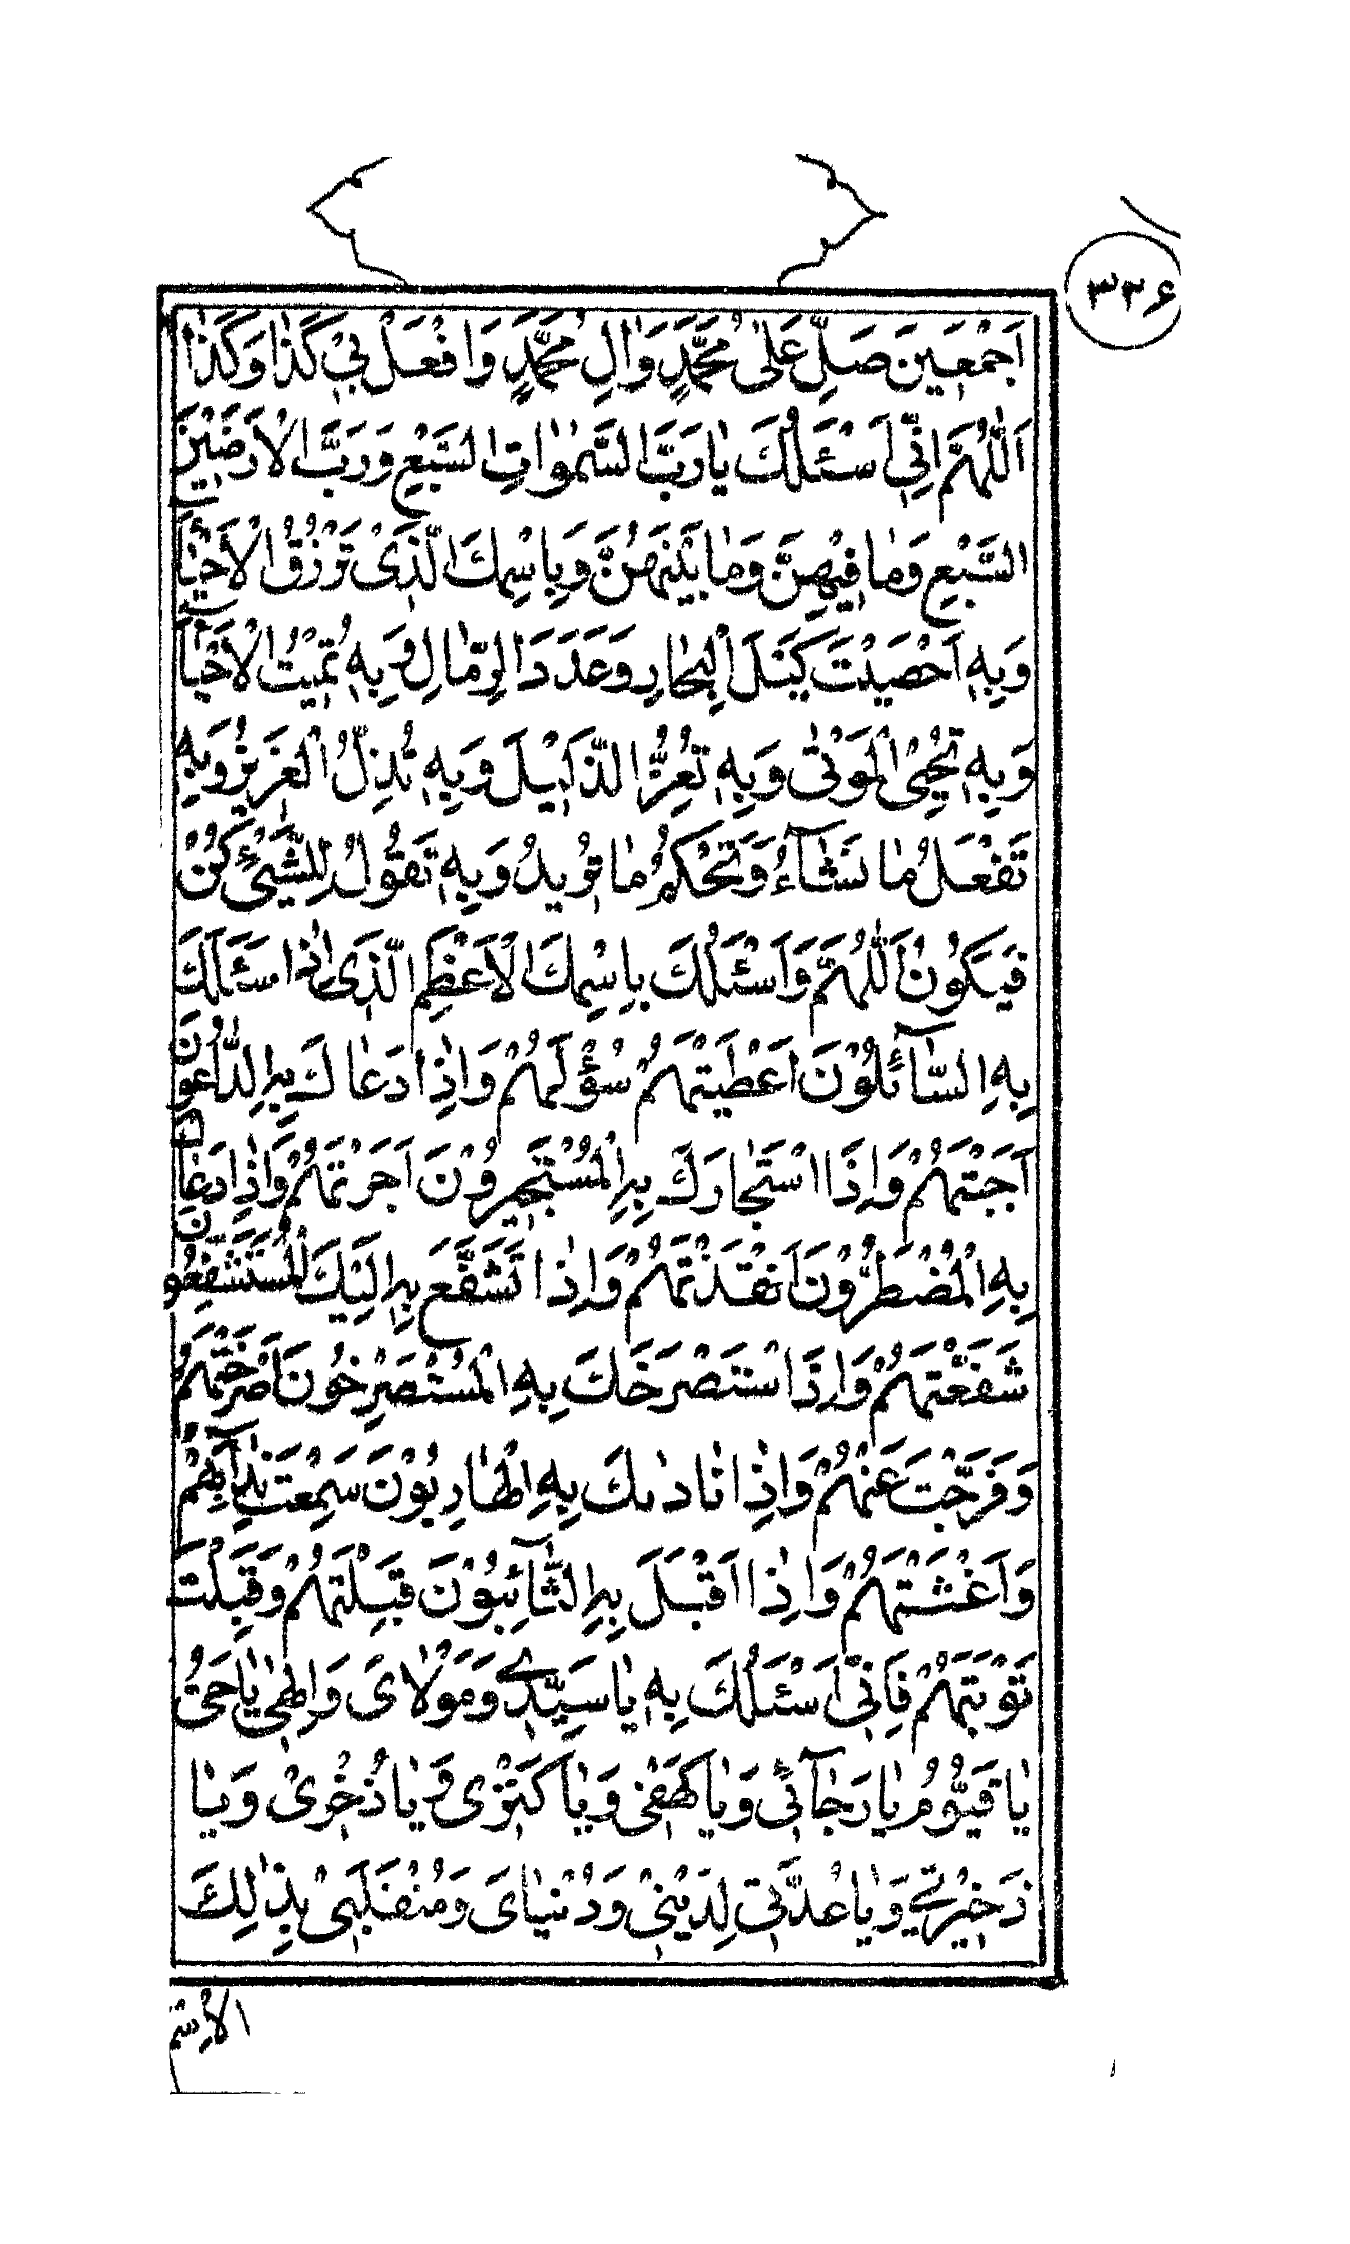 ۳۳۶
اَجْمَعينَ صَلِّ عَلىٰ مُحَمَّدٍ وَاٰلِ مُحَمَّدٍ وَافْعَلْ بي كَذٰا وَكَذٰا
اَللّٰهُمَّ اِنّي اَسْئَلُكَ يٰا رَبَّ السَّمٰوٰاتِ السَّبْعِ وَرَبَّ الْاَرَضينَ
السَّبْعِ وَمٰا فيهِنَّ وَمٰا بَيْنَهُنَّ وَبِاسْمِكَ الَّذي تَرْزُقُ الْاَحْيٰآءَ
وَبِهِ اَحْصَيْتَ كَيْلَ الْبِحٰارِ وَعَدَدَ الرِّمٰالِ وَبِهِ تُميتُ الْاَحْيٰآءَ
وَبِهِ تُحْيِى الْمَوْتىٰ وَبِهِ تُعِزُّ الذَّليلَ وَبِهِ تُذِلُّ الْعَزيزَ وَبِهِ
تَفْعَلُ مٰا تَشٰآءُ وَتَحْكُمُ مٰا تُريدُ وَبِهِ تَقُولُ لِلشَّيْئِ كُنْ
فَيَكُونُ اَللّٰهُمَّ وَاَسْئَلُكَ بِاسْمِكَ الْاَعْظَمِ الَّذى اِذٰا سَئَلَكَ
بِهِ السّٰآئِلُونَ اَعْطَيْتَهُمْ سُؤْلَهُمْ وَاِذٰا دَعٰاكَ بِهِ الدّٰاعُونَ
اَجَبْتَهُمْ وَاِذَا اسْتَجٰارَكَ بِهِ الْمُسْتَجيرُونَ اَجَرْتَهُمْ وَاِذٰا دَعٰاكَ
بِهِ الْمُضْطَرُّونَ اَنْقَذْتَهُمْ وَاِذٰا تَشَفَّعَ بِهِ اِلَيْكَ الْمُتَشَفِّعُونَ
شَفَّعْتَهُمْ وَاِذَا اسْتَصْرَخَكَ بِهِ الْمُسْتَصْرِخُونَ اَصْرَخْتَهُمْ
وَفَرَّجْتَ عَنْهُمْ وَاِذٰا نٰادٰىكَ بِهِ الْهٰارِبُونَ سَمِعْتَ نِدٰآئَهُمْ
وَاَغَثْتَهُمْ وَاِذٰا اَقْبَلَ بِهِ التّٰآئِبُونَ قَبِلْتَهُمْ وَقَبِلْتَ
تَوْبَتَهُمْ فَاِنّي اَسْئَلُكَ بِهِ يٰا سَيِّدي وَمَوْلٰاىَ وَاِلٰهى يٰا حَىُّ
يٰا قَيُّومُ يٰا رَجٰآئي وَيٰا كَهْفى وَيٰا كَنْزى وَيٰا ذُخْرى وَيٰا
ذَخيرَتي وَيٰا عُدَّتي لِديني وَدُنْيٰاىَ وَمُنْقَلَبى بِذٰلِكَ
الْاِسْمِ